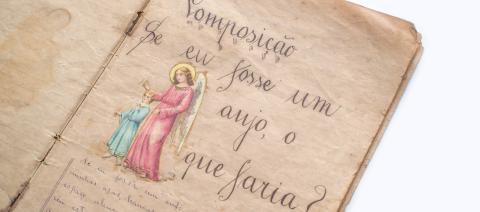 Composição
Se eu fosse um
anjo, o
que faria?
Se eu fosse um anjo